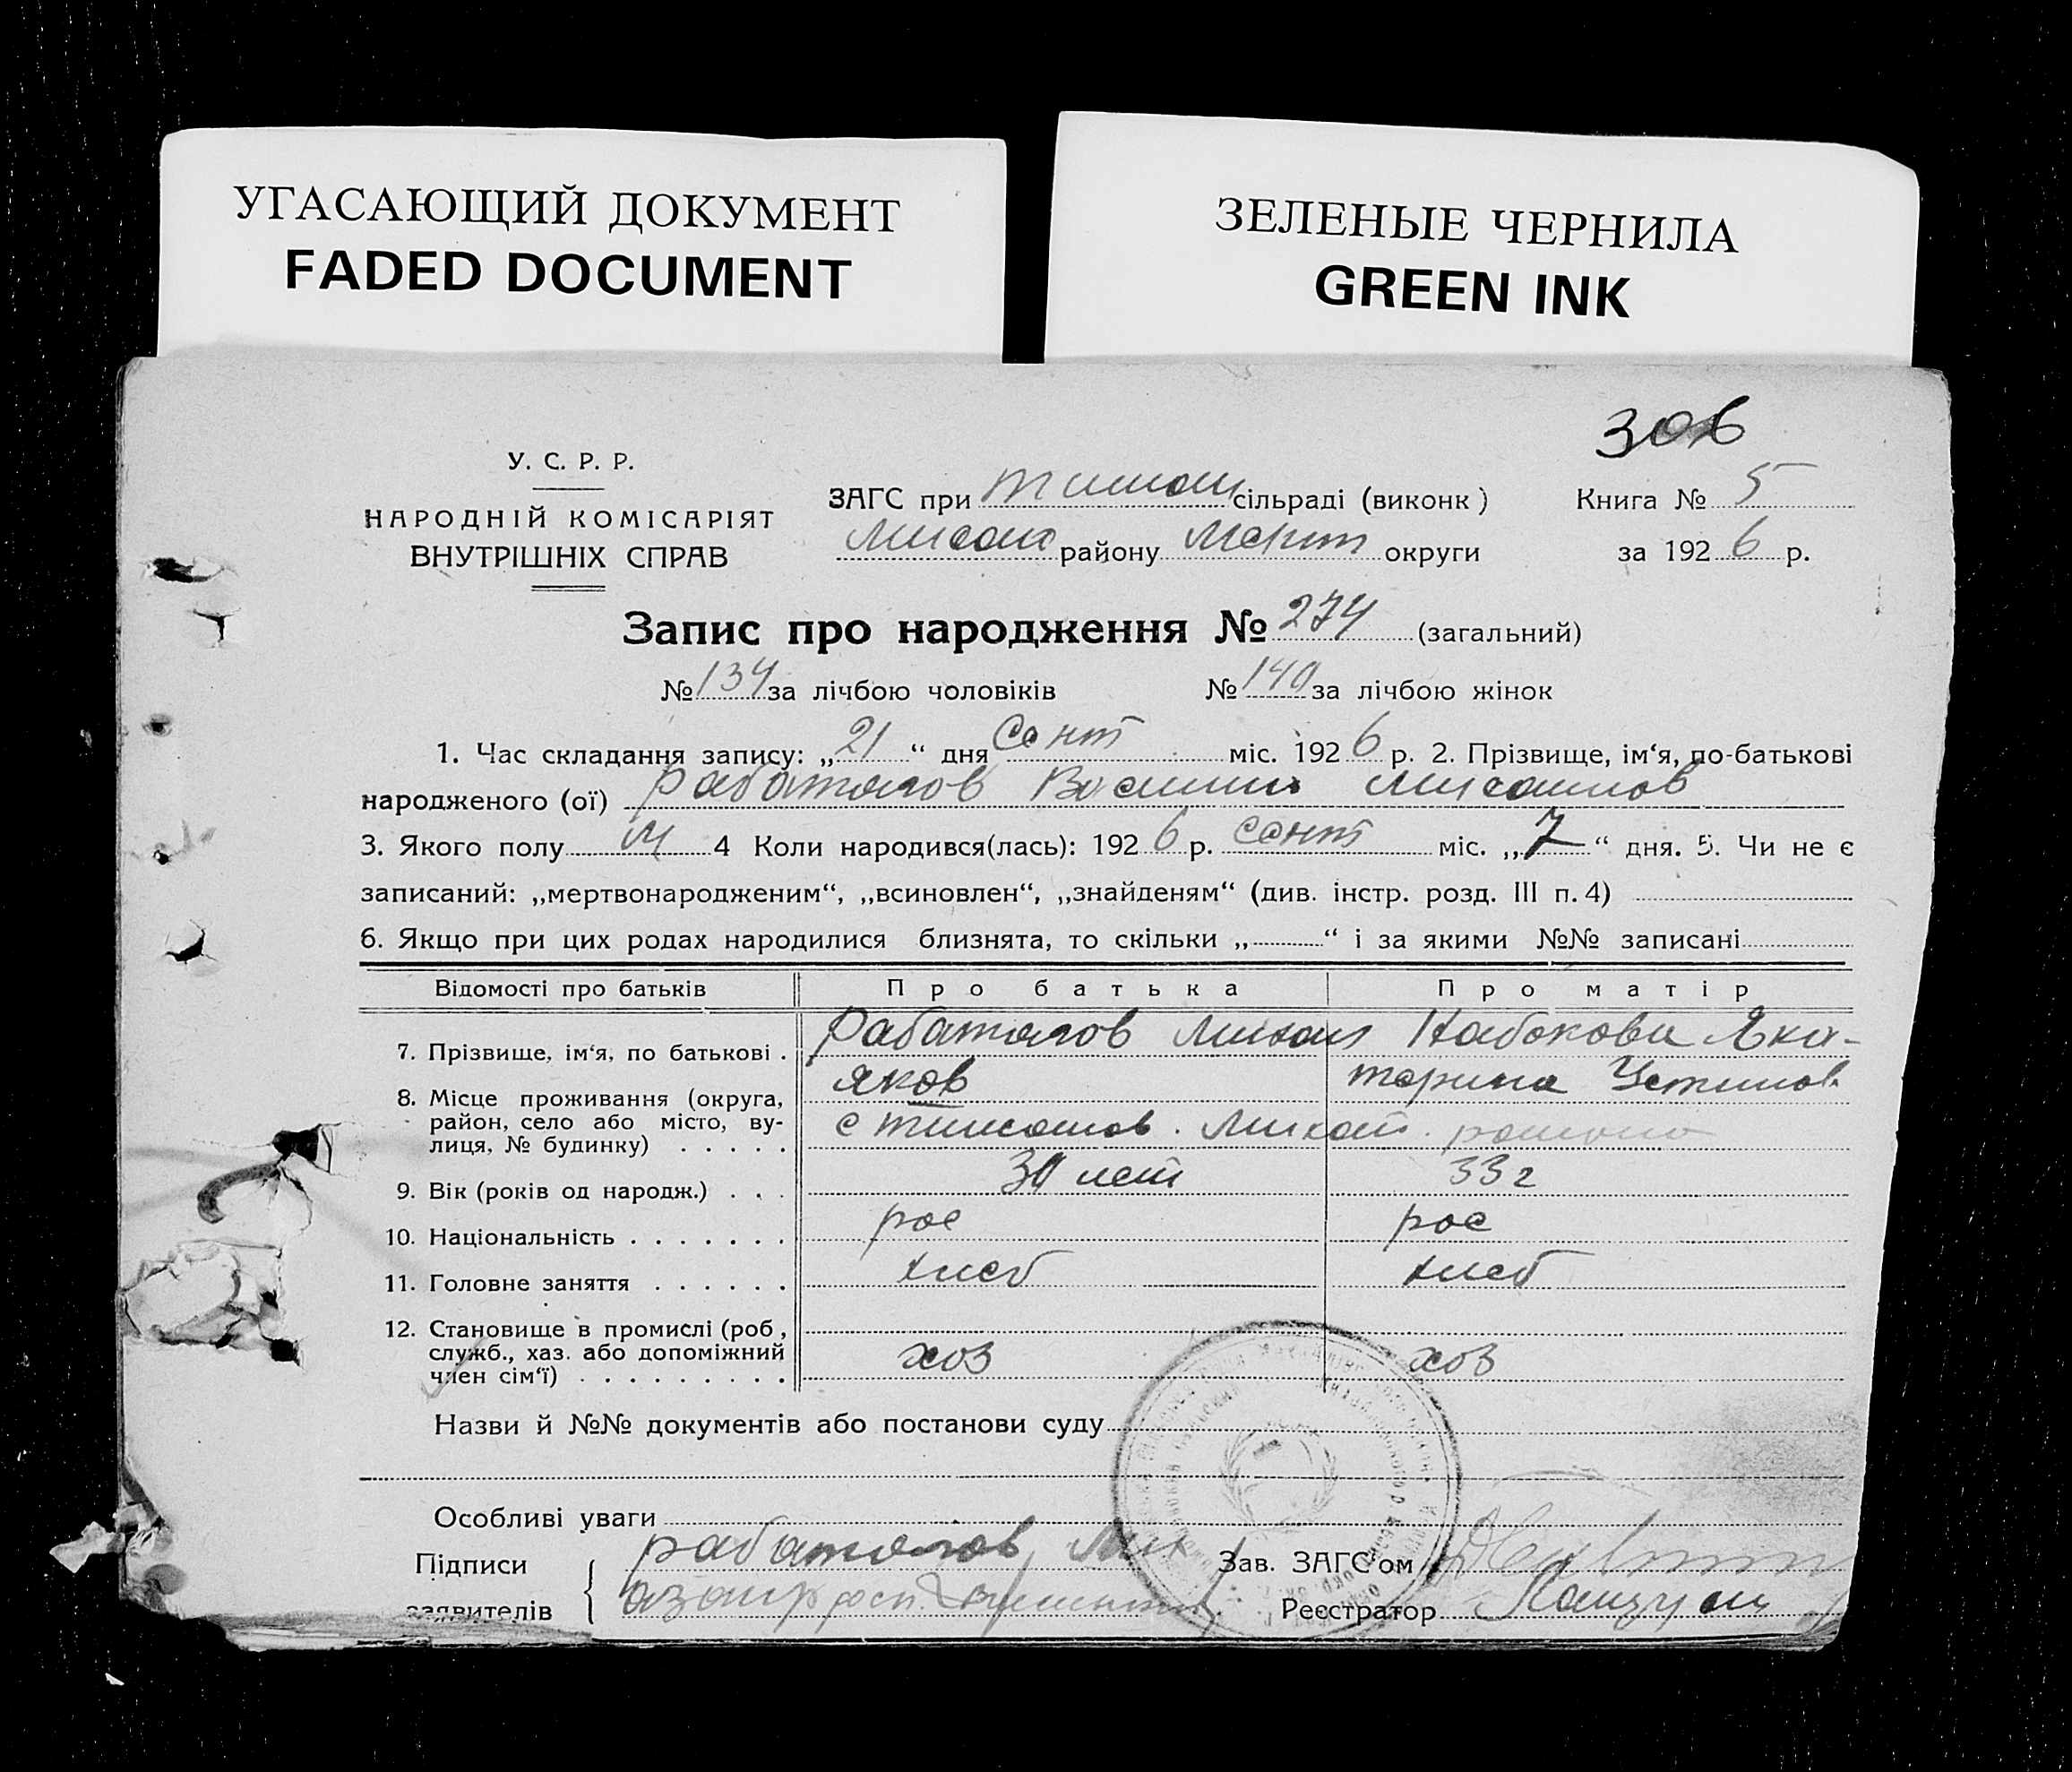 УГАСАЮЩИЙ ДОКУМЕНТ
FADED DOCUMENT
ЗЕЛЕНЫЕ ЧЕРНИЛА
GREEN INK
306
У. С. Р. Р.
НАРОДНІЙ КОМІСАРІЯТ
ВНУТРІШНІХ СПРАВ
ЗАГС при сільраді (виконк) Книга № 5
району округи за 1926 р.
Запис про народження № 274 (загальний)
№ 134 за лічбою чоловіків № 140 за лічбою жінок
1. Час складання запису: „21“ дня Сент міс. 1926 р. 2. Прізвище, ім‘я, по-батькові
народженого (ої) Работягов
3. Якого полу М 4 Коли народився(лась): 1926 р. сент міс. „7“ дня. 5. Чи не є
записаний: „мертвонародженим“, „всиновлен“, „знайденям“ (див. інстр. розд. III п. 4)
6. Якщо при цих родах народилися близнята, то скільки „ “ і за якими №№ записані
Відомості про батьків Про батька Про матір
7. Прізвище, ім‘я, по батькові . Работягов Михаил Набокова Яка-
Яков терина Устинов
8. Місце проживання (округа,
район, село або місто, ву-
лиця, № будинку) . . . . .
9. Вік (років од народж.) . . . лет 33 г
10. Національність . . . . . . . рос рос
11. Головне заняття . . . . . . хлеб хлеб
12. Становище в промислі (роб,
служб., хаз. або допоміжний
член сім‘ї) . . . . . . . . . хоз хоз
Назви й №№ документів або постанови суду
Особливі уваги
Підписи Работягов Мих
заявителів
Зав. ЗАГС‘ом
Реєстратор